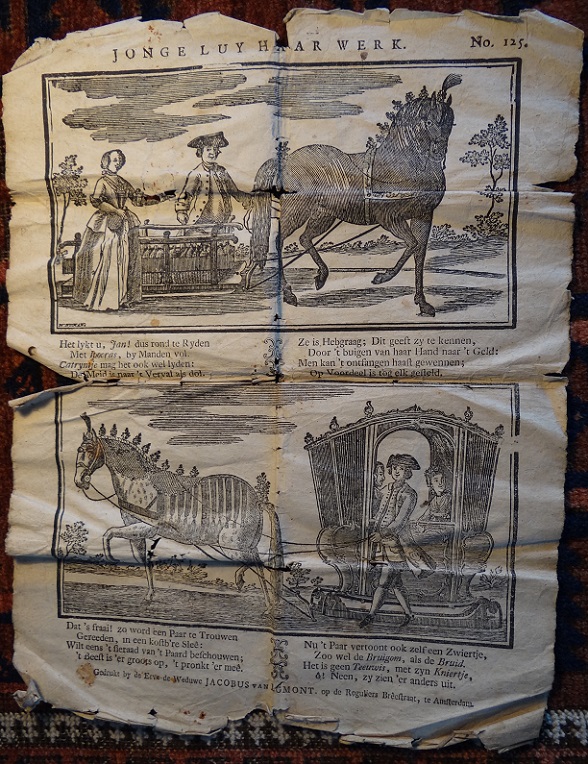 JONGE LUY HAAR WERK. No. 125.
Het lykt u, Jan! dus rond te Ryden
Met Ipocras, by Manden vol.
Catryntje mag het ook wel lyden:
De Meid is naar 't Verval als dol.
Ze is Hebgraag; Dit geeft zy te kennen,
Door 't buigen van haar Hand naar 't Geld:
Men kan 't ontfangen haast gewennen;
Op Voordeel is tog elk gesteld.
Dat 's fraai! zo word een Paar te Trouwen
Gereeden, in een kostb're Sleê:
Wilt eens 't sieraad van 't Paard beschouwen;
't deest is 'er groots op, 't pronkt 'er meê.
Nu 't Paar vertoont ook zelf een Zwiertje,
Zoo wel de Bruigom, als de Bruid.
Het is geen Teeuwis, met zyn Kniertje,
ô! Neen, zy zien 'er anders uit.
Gedrukt by de Erve de Weduwe JACOBUS VAN EGMONT, op de Reguliers Brêestraat, te Amsterdam.